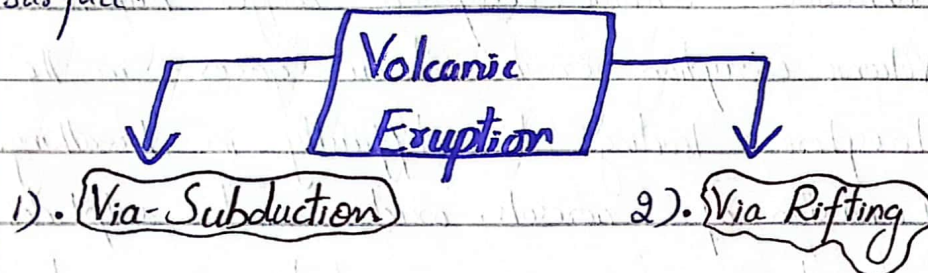 Volcanic
Eruption
1). Via-Subduction
2). Via Rifting